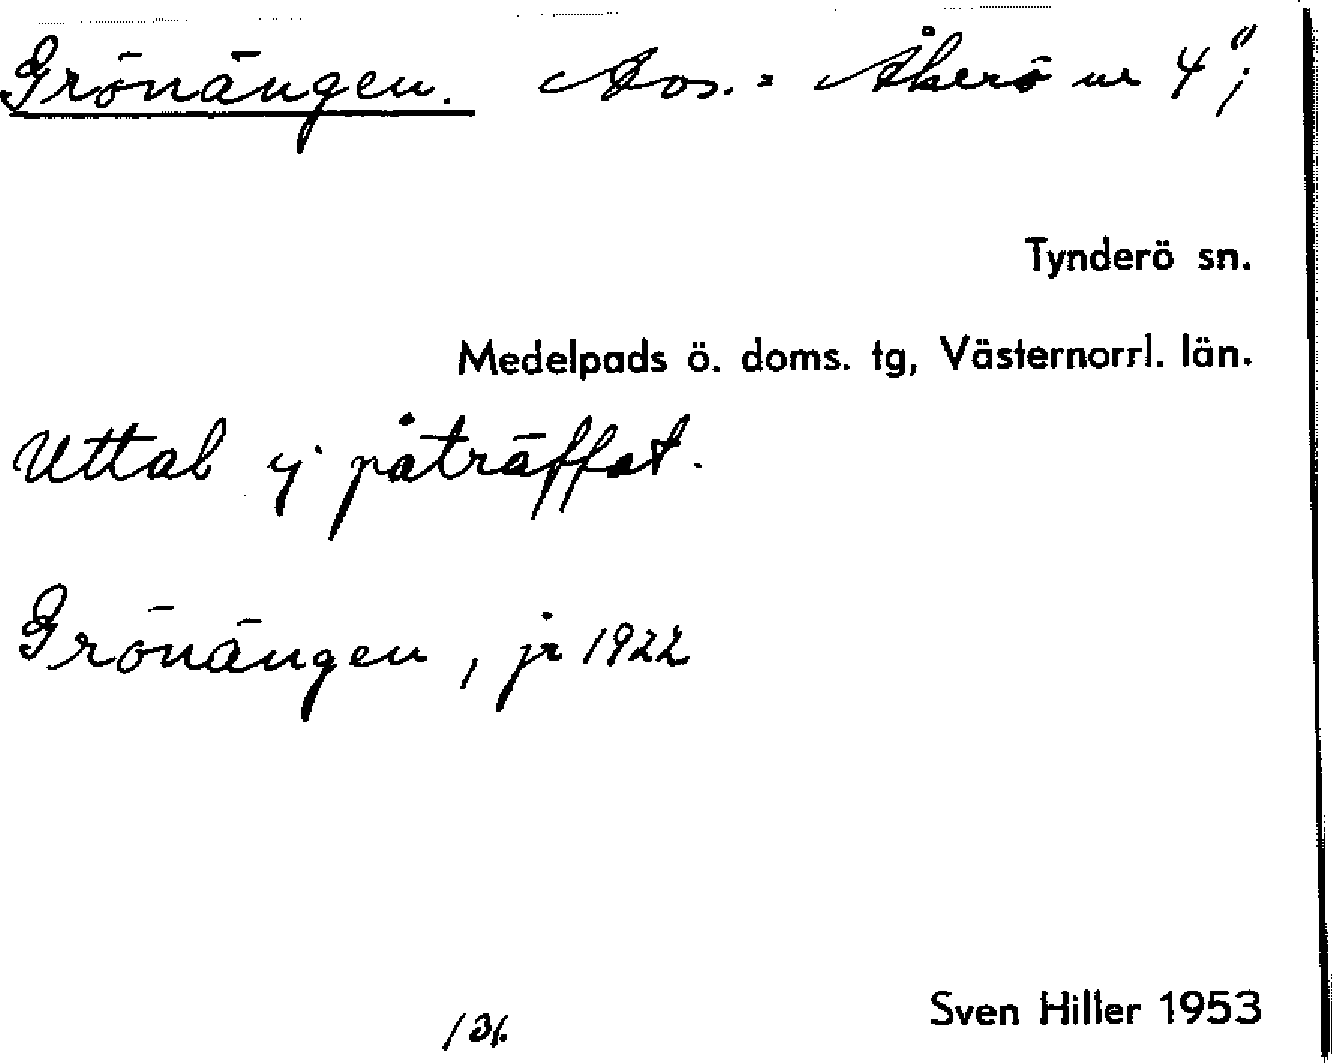 Grönängen. Avs. = Åkerö nr 4";
Tynderö sn.
Medelpads ö. doms. tg, Västernorrl. län.
Uttal ej påträffat.
Grönängen, jr 1922
Sven Hiller 1953